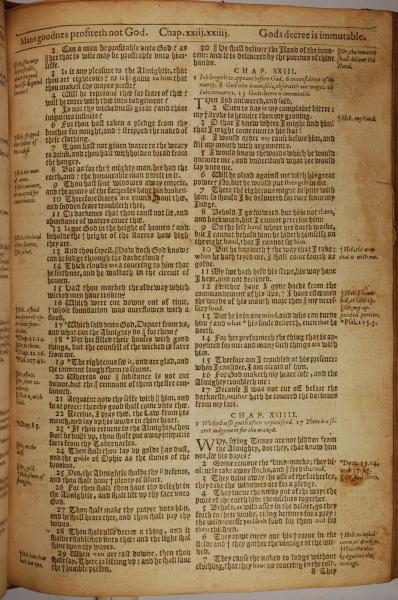 Mans goodnes profiteth not God. Chap.xxij.xxiij. Gods decree is immutable.
2 Can a man be profitable vnto God? as
hee that is wise may be profitable vnto him-
selfe.
3 Is it any pleasure to the Almightie, that
thou art righteous? or is it gaine to him, that
thou makest thy wayes perfite?
4 Will he reprooue thee for feare of thee?
will he enter with thee into iudgement?
5 Is not thy wickednesse great? and thine
iniquities infinite?
6 For thou hast taken a pledge from thy
brother for nought, and stripped the naked of
their clothing.
7 Thou hast not giuen water to the weary
to drinke, and thou hast withholden bread from
the hungry.
8 But as for the mighty man, hee had the
earth, and the honourable man dwelt in it.
9 Thou hast sent widowes away emptie,
and the armes of the fatherles haue bin broken.
10 Therefore snares are round about thee,
and sudden feare troubleth thee,
11 Or darkenes that thou canst not see, and
abundance of waters couer thee.
12 Is not God in the height of heauen? and
behold the height of the starres how high
they are.
13 And thou sayest, How doth God know?
can he iudge through the darke cloud?
14 Thicke cloudes are a couering to him that
he seeth not, and he walketh in the circuit of
heauen.
15 Hast thou marked the olde way which
wicked men haue troden?
16 Which were cut downe out of time,
whose foundation was ouerflowen with a
flood.
17 Which said vnto God, Depart from vs,
and what can the Almighty do for them?
18 Yet he filled their houses with good
things; but the counsell of the wicked is farre
from me.
19 The righteous see it, and are glad, and
the innocent laugh them to scorne.
20 Whereas our substance is not cut
downe, but the remnant of them the fire con-
sumeth.
21 Acquaint now thy selfe with him, and
be at peace: thereby good shall come vnto thee.
22 Receiue, I pray thee, the Law from his
mouth, and lay vp his words in thine heart.
23 If thou returne to the Almighty, thou
shalt be built vp, thou shalt put away iniquitie
farre from thy Tabernacles.
24 Then shalt thou lay vp golde as dust,
and the gold of Ophir as the stones of the
brookes.
25 Yea, the Almightie shalbe thy defence,
and thou shalt haue plenty of siluer.
26 For then shalt thou haue thy delight in
the Almightie, and shalt lift vp thy face vnto
God.
27 Thou shalt make thy prayer vnto him,
and he shall heare thee, and thou shalt pay thy
vowes.
28 Thou shalt also decree a thing, and it
shalbe established vnto thee: and the light shall
shine vpon thy wayes.
29 When men are cast downe, then thou
shalt say, There is lifting vp: and he shall saue
the humble person.
30 He shall deliuer the Iland of the inno-
cent: and it is deliuered by the purenes of thine
hands.
CHAP. XXIII.
1 Iob longeth to appeare before God, 6 in confidence of his
mercy. 8 God who is inuisible, obserueth our wayes. 11
Iobs innocencie. 13 Gods decree is immutable.
THen Iob answered, and said,
2 Euen to day is my complaint bitter:
my stroke is heauier then my groning.
3 O that I knew where I might finde him!
that I might come euen to his seat!
4 I would order my cause before him, and
fill my mouth with arguments.
5 I would know the words which he would
answere me, and vnderstand what hee would
say vnto me.
6 Will he plead against me with his great
power? No, but he would put strength in me.
7 There the righteous might dispute with
him; so should I be deliuered for euer from my
Iudge.
8 Behold, I go forward, but he is not there,
and backward, but I cannot perceiue him:
9 On the left hand where hee doeth worke,
but I cannot behold him: he hideth himselfe on
the right hand, that I cannot see him.
10 But he knoweth the way that I take:
when he hath tryed me, I shall come foorth as
golde.
11 My foot hath held his steps, his way haue
I kept, and not declined.
12 Neither haue I gone backe from the
commandement of his lips, I haue esteemed
the words of his mouth more then my neces-
sary food.
13 But he is in one minde, and who can turne
him? and what his soule desireth, euen that he
doeth.
14 For hee performeth the thing that is ap-
pointed for me: and many such things are with
him.
15 Therefore am I troubled at his presence:
when I consider, I am afraid of him.
16 For God maketh my heart soft, and the
Almighty troubleth me:
17 Because I was not cut off before the
darkenesse, neither hath he couered the darkenes
from my face.
CHAP. XXIIII.
1 Wickednesse goeth often vnpunished. 17 There is a se-
cret iudgement for the wicked.
WHy, seeing Times are not hidden from
the Almighty, doe they, that know him
not, see his dayes?
2 Some remoue the land-marks; they vio-
lently take away flocks, and feed thereof.
3 They driue away the asse of the fatherles,
they take the widowes oxe for a pledge.
4 They turne the needy out of the way: the
poore of the earth hide themselues together.
5 Behold, as wilde asses in the desert, goe they
foorth to their worke, rising betimes for a pray:
the wildernesse yeeldeth food for them and for
their children.
6 They reape euery one his corne in the
field: and they gather the vintage of the wic-
ked.
7 They cause the naked to lodge without
clothing, that they haue no couering in the cold.
8 They